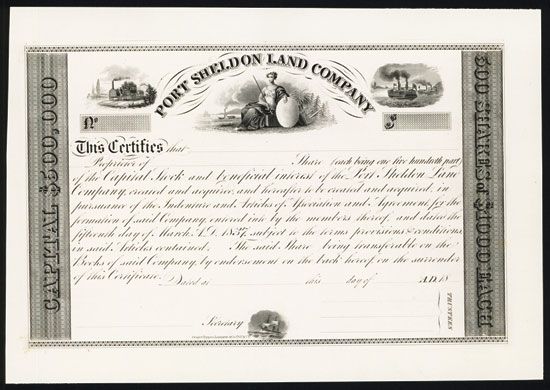 PORT SHELDON LAND COMPANY
CAPITAL $500,000
No
$
This Certifies that
Proprietor of Share (each being one five hundredth part)
of the Capital Stock and beneficial interest of the Port Sheldon Land
Company, created and acquired, and hereafter to be created and acquired, in
pursuance of the Indenture and Articles of Association and Agreement, for the
formation of said Company entered into by the members thereof, and dated the
fifteenth day of March A.D. 1837, subject to the terms provisions & conditions
in said Articles contained. The said Share being transferable on the
Books of said Company by endorsement on the back hereof, on the surrender
of this Certificate. Dated at this day of A.D. 18
Secretary
TRUSTEES
500 SHARES of $1000 EACH